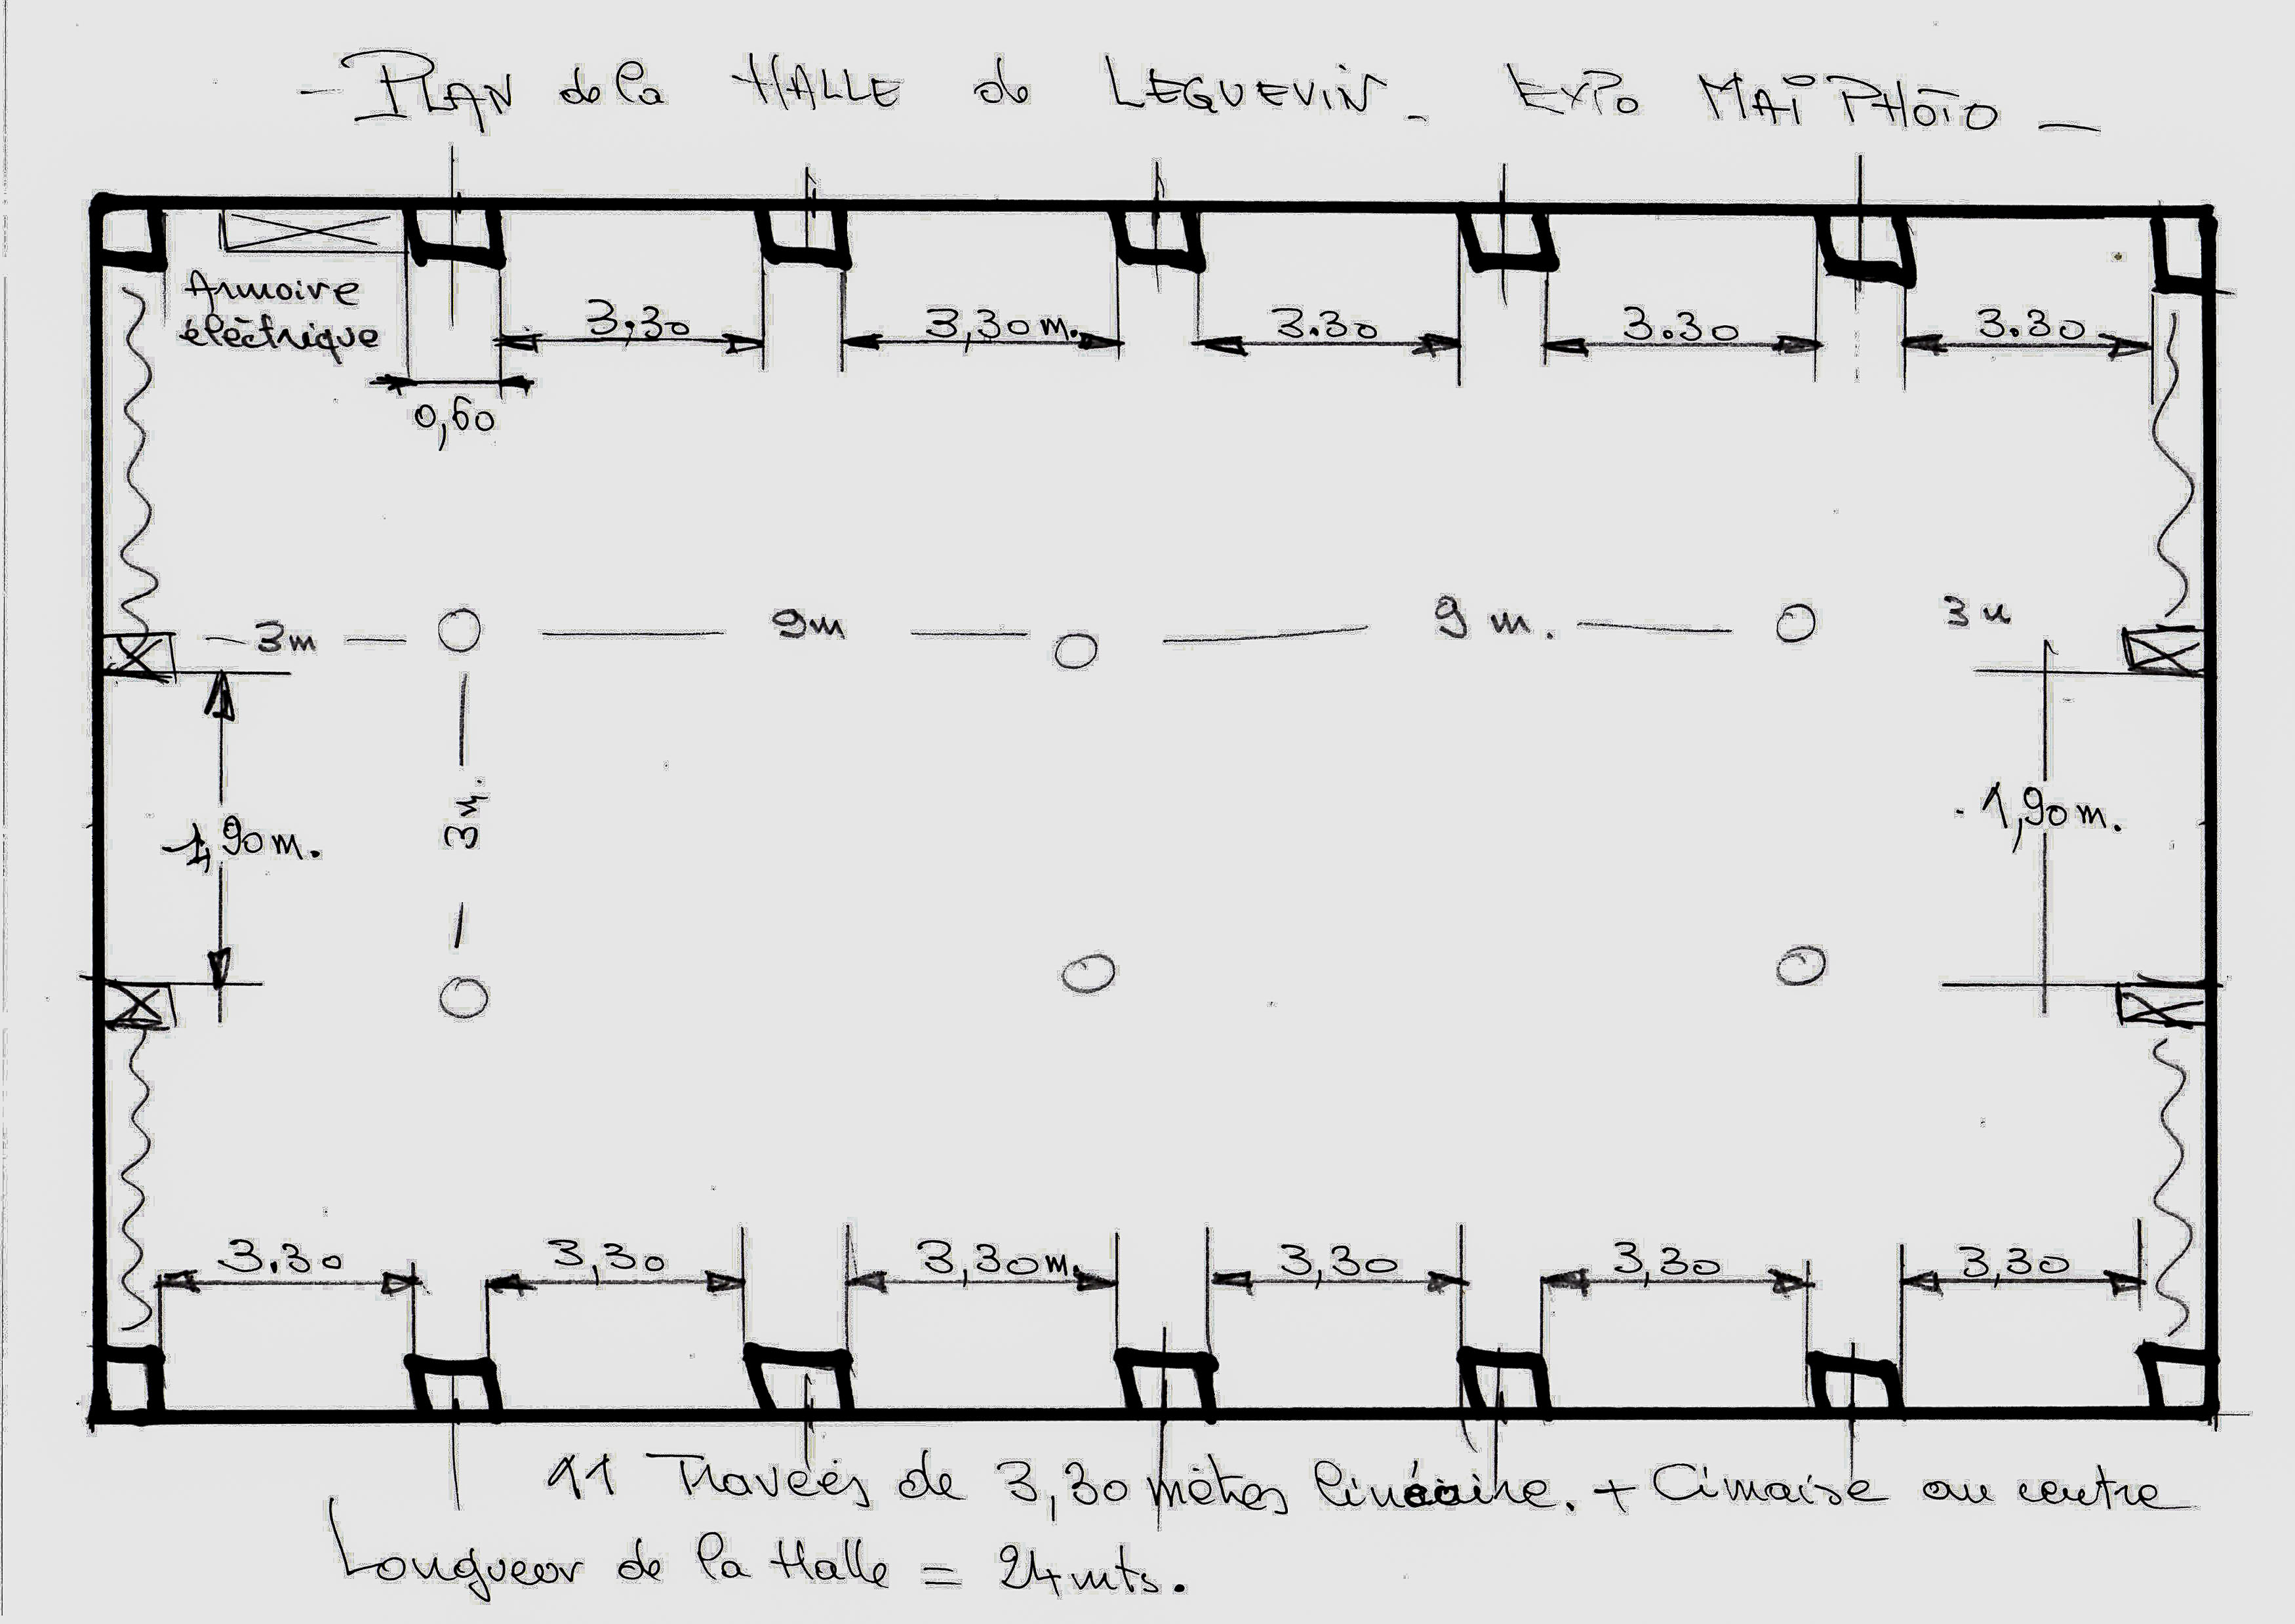 - PLAN de la HALLE de LEGUEVIN - EXPO MAI PHOTO -
Armoire
éléctrique
3,30
3,30 m.
3.30
3.30
3.30
0,60
3m
9m
9 m.
3 m
1,90 m.
3 m.
1,90 m.
3.30
3,30
3,30 m.
3,30
3,30
3,30
11 Travées de 3,30 mètres linéaire. + Cimaise au centre
Longueur de la Halle = 24 mts.